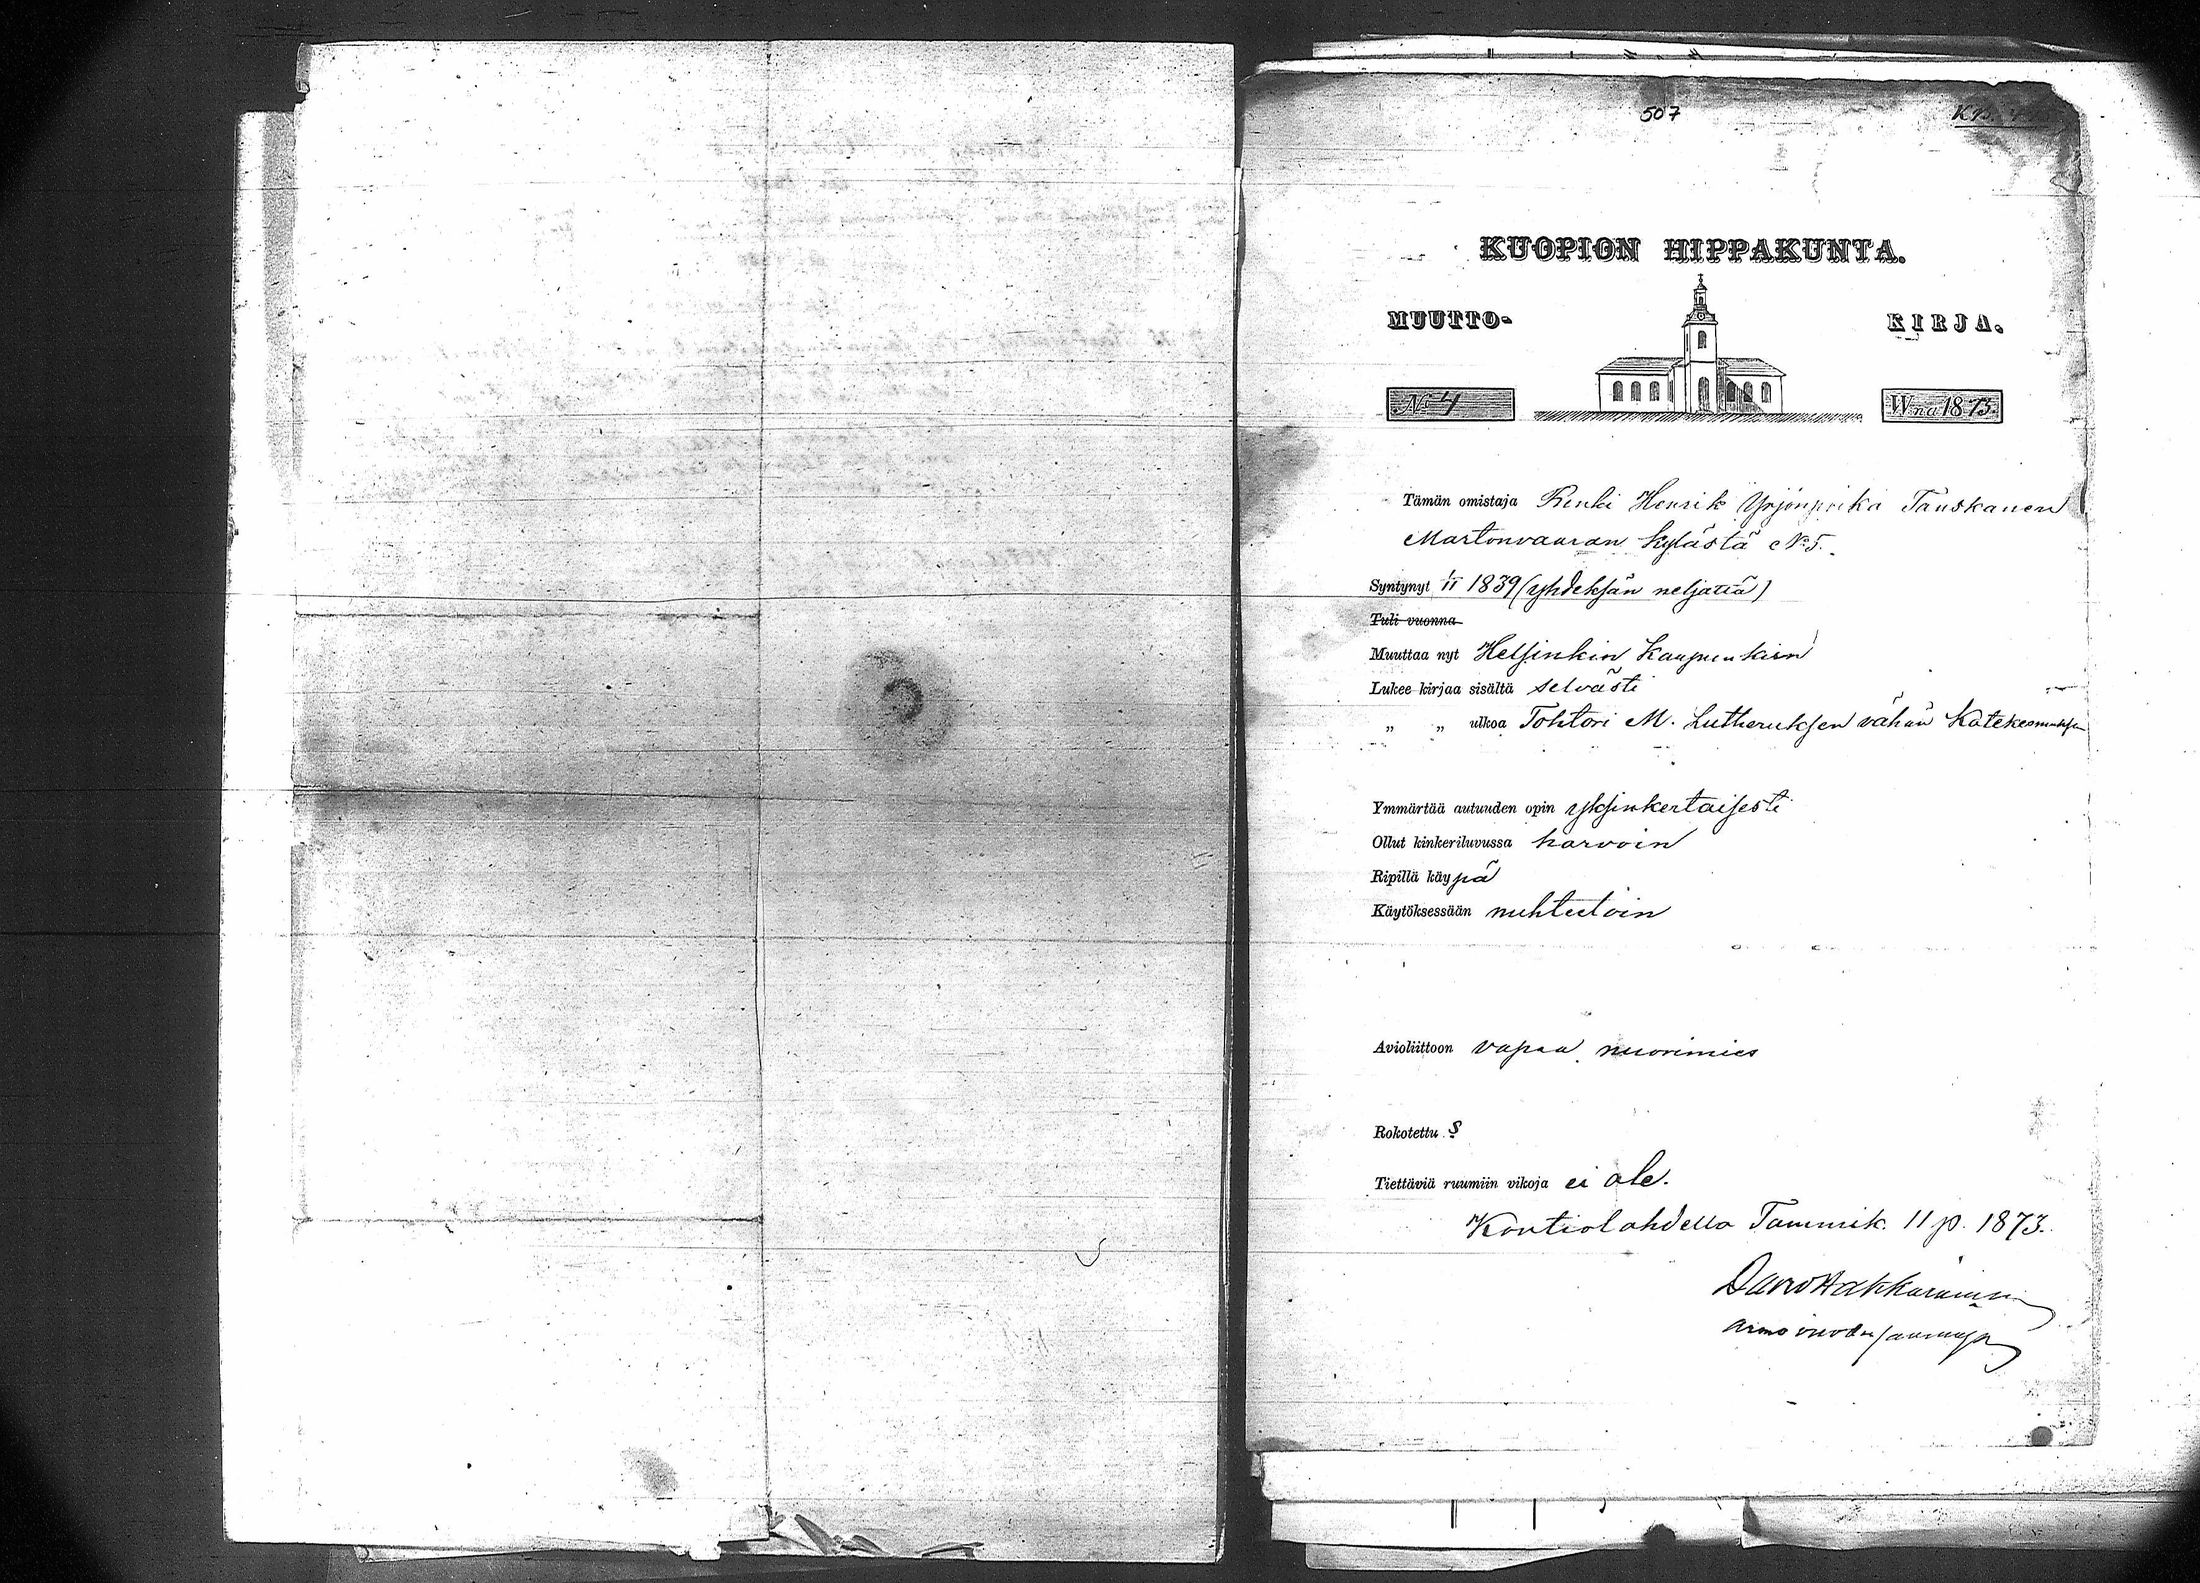 507
KUOPION HIPPAKUNTA.
MUUTTO-
KIRJA.
No 4
W:na 1873.
Tämän omistaja Renki Henrik Yrjönpoika Tanskanen
Martonvaaran kylästä No 5.
Syntynyt 1/11 1839 (yhdeksän neljättä)
Tuli vuonna
Muuttaa nyt Helsinkin Kaupunkiin
Lukee kirjaa sisältä selvästi
„ „ ulkoa Tohtori M. Lutheruksen vähän Katekesmuksen
Ymmärtää autuuden opin yksinkertaisesti
Ollut kinkeriluvussa harvoin
Ripillä käypä
Käytöksessään nuhteetoin
Avioliittoon vapaa nuorimies
Rokotettu §
Tiettäviä ruumiin vikoja ei ole.
Kontiolahdella Tammik. 11 p. 1873.